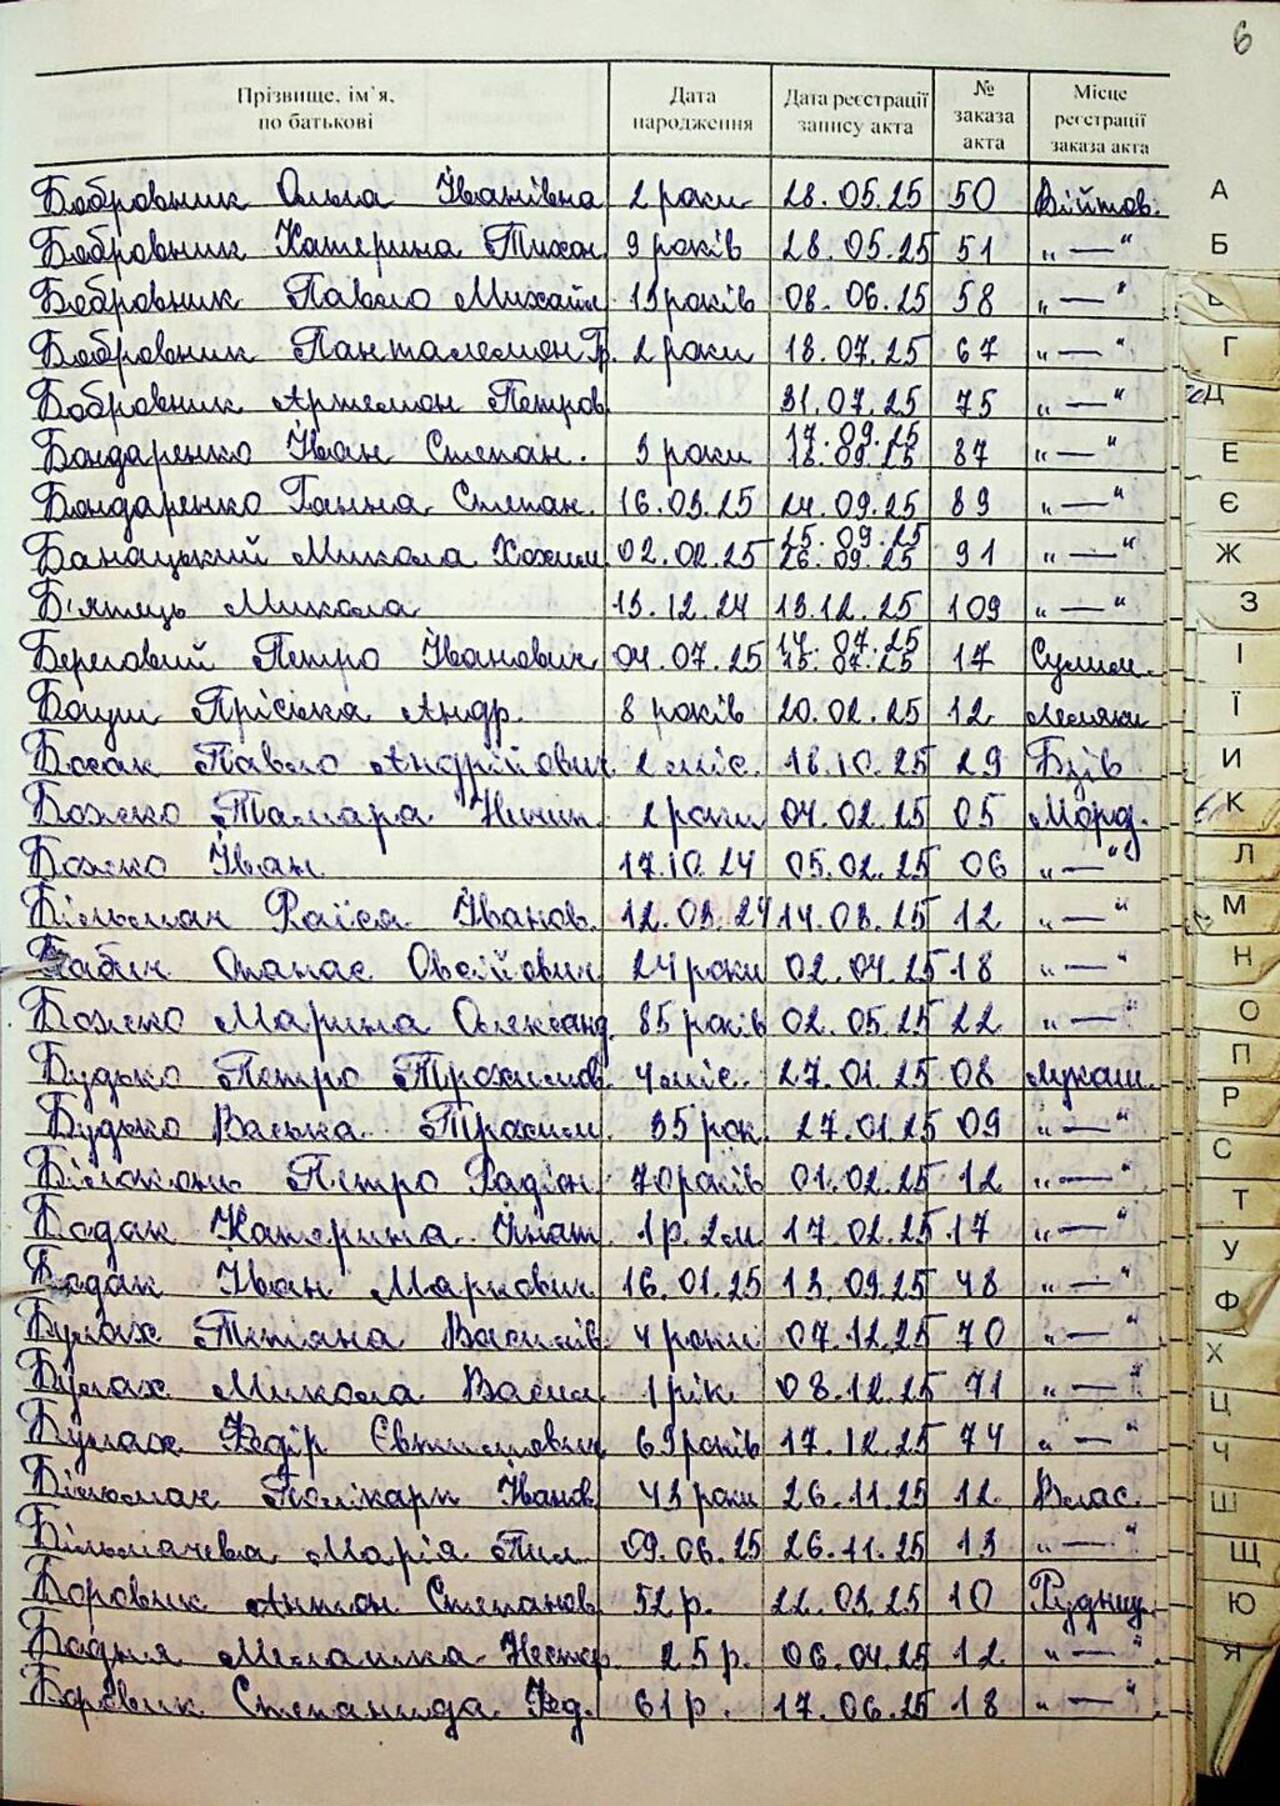 6
Прізвище, ім'я, по батькові Дата народження Дата реєстрації запису акта № заказа акта Місце реєстрації заказа акта
Бобровник Ольга Іванівна 2 роки 28.05.25 50 Війтов.
Бобровник Катерина Тихон. 9 років 28.05.25 51 „—“
Бобровник Павло Михайл. 13 років 08.06.25 58 „—“
Бобровник Панталемон Гр. 2 роки 18.07.25 67 „—“
Бобровник Артемон Петров. 31.07.25 75 „—“
Бондаренко Іван Степан. 3 роки 17.09.25 18.09.25 87 „—“
Бондаренко Ганна Степан. 16.03.25 24.09.25 89 „—“
Банацький Микола 02.02.25 25.09.25 26.09.25 91 „—“
Б'ятець Микола 13.12.24 13.12.25 109 „—“
Береговий Петро Іванович 04.07.25 14.07.25 15.07.25 17 Сулим.
Бацун Пріська Андр. 8 років 20.02.25 12 Лемяки
Босак Павло Андрійович 2 міс. 18.10.25 29 Бзів
Божко Тамара Ничип. 2 роки 04.02.25 05 Морд.
Божко Іван 17.10.24 05.02.25 06 „—“
Більмач Раїса Іванов. 12.03.24 14.03.25 12 „—“
Бабич Опанас Овсійович 24 роки 02.04.25 18 „—“
Божко Марина Олександ. 85 років 02.05.25 22 „—“
Будько Петро Трохимов. 4 міс. 27.01.25 08 Лукаш.
Будько Васька Трохим. 35 рок. 27.01.25 09 „—“
Білоконь Петро Радіон. 70 років 01.02.25 12 „—“
Бодак Катерина Ігнат. 1р. 2м. 17.02.25 17 „—“
Бодак Іван Маркович 16.01.25 13.09.25 48 „—“
Булах Тетяна Василів. 4 роки 07.12.25 70 „—“
Булах Микола Васил. 1 рік 08.12.25 71 „—“
Булах Федір Євтимович 69 років 17.12.25 74 „—“
Більмач Полікарп Іванов. 43 роки 26.11.25 12 Влас.
Більмачева Марія Пил. 09.06.25 26.11.25 13 „—“
Боровик Антон Степанов. 52 р. 22.03.25 10 Рудниц.
Бодня Мелашка Нестер. 25 р. 06.04.25 12 „—“
Боровик Степанида Фед. 61 р. 17.06.25 18 „—“
А
Б
Г
Д
Е
Є
Ж
З
І
Ї
И
К
Л
М
Н
О
П
Р
С
Т
У
Ф
Х
Ц
Ч
Ш
Щ
Ю
Я